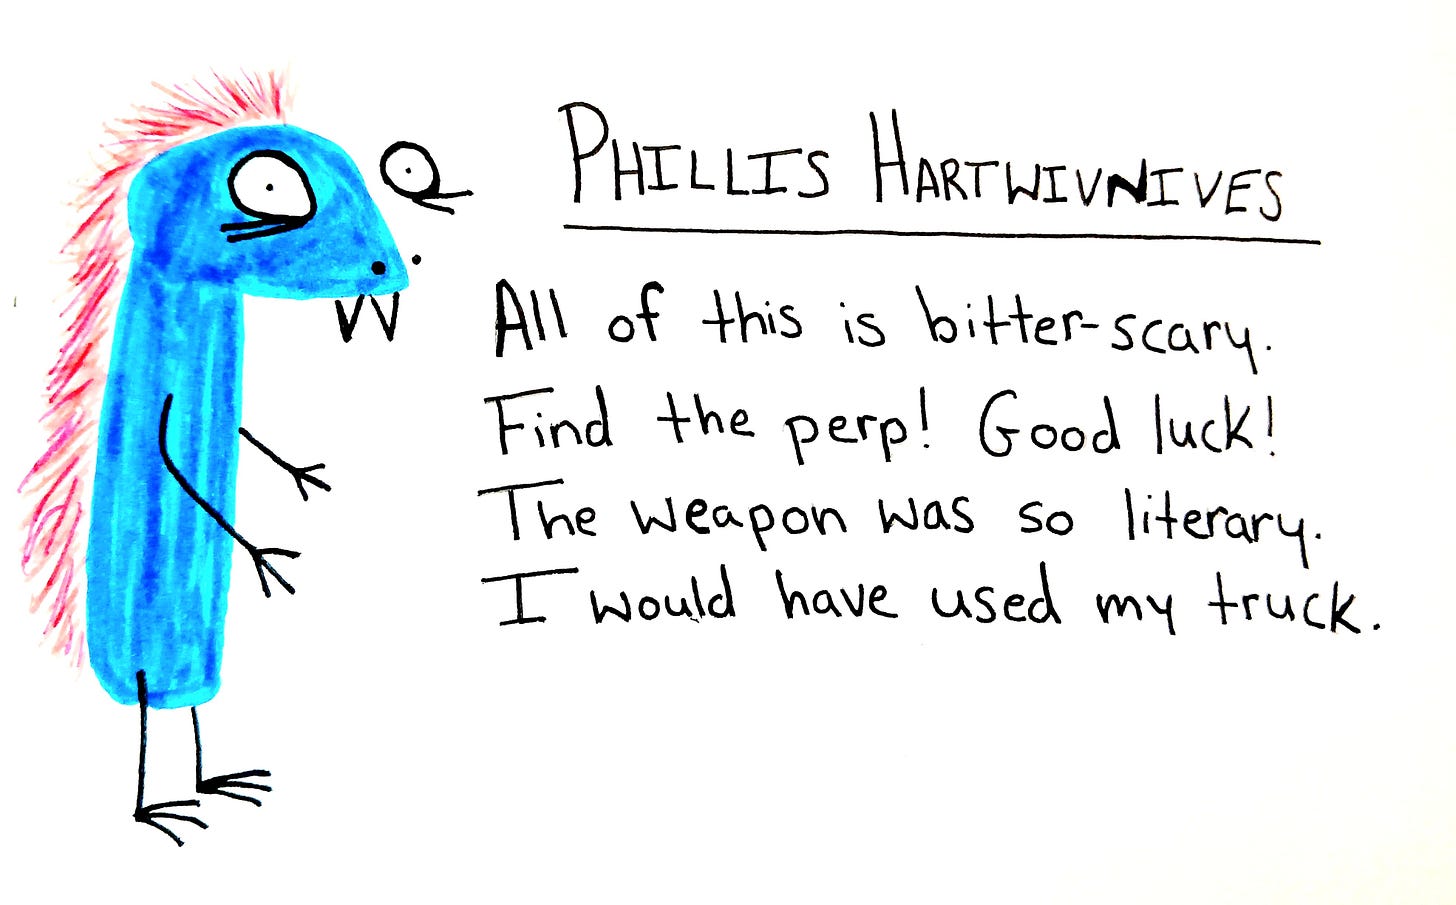 PHILLIS HARTWIVNIVES
All of this is bitter-scary.
Find the perp! Good luck!
The weapon was so literary.
I would have used my truck.